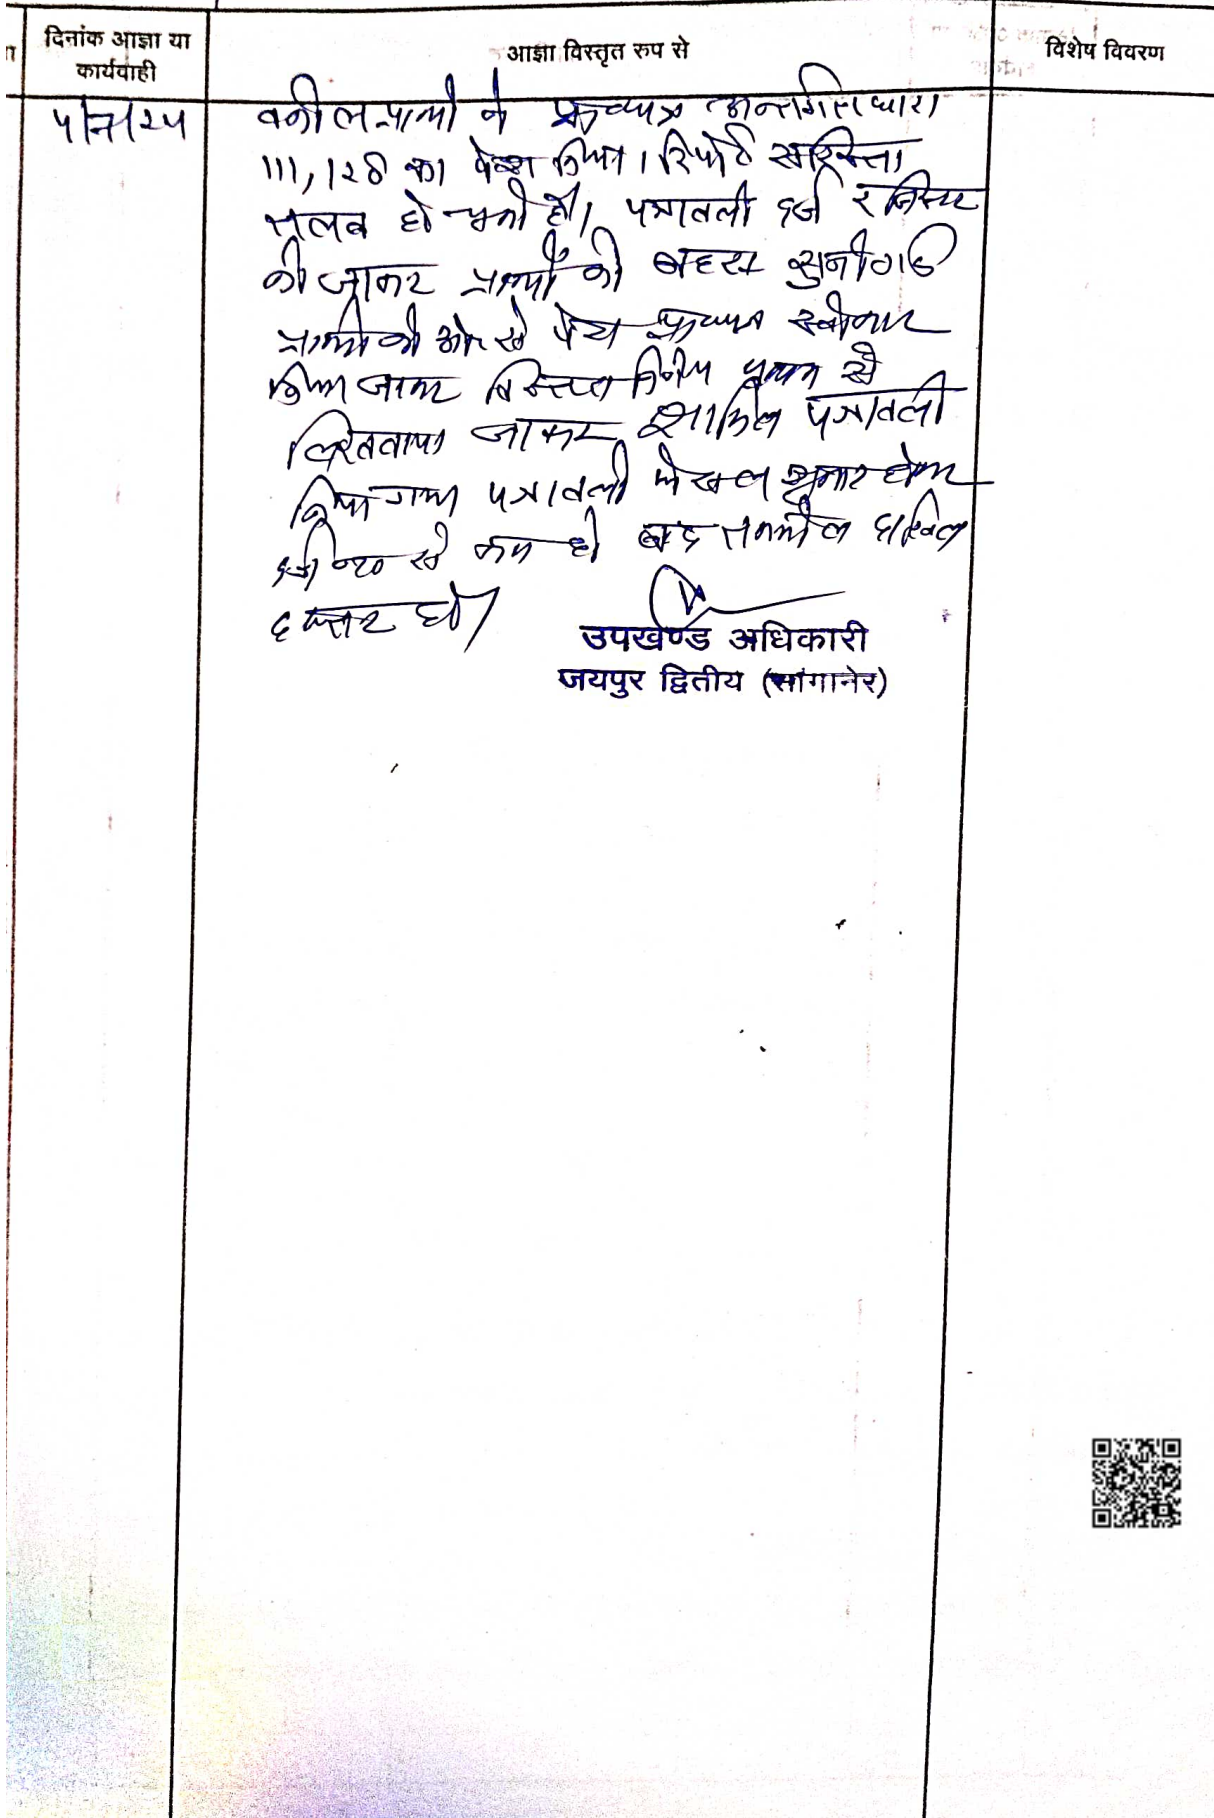 दिनांक आज्ञा या
कार्यवाही
आज्ञा विस्तृत रुप से
विशेष विवरण
वकील प्रार्थी ने प्रा०पत्र अन्तर्गत धारा
111, 128 का पेश किया। रिपोर्ट सरिस्ता
तलब हो चुकी है। पत्रावली दर्ज रजिस्टर
की जाकर प्रार्थी की बहस सुनी गई
प्रार्थी की ओर से पेश प्रा०पत्र स्वीकार
किया जाकर विस्तृत निर्णय पृथक से
लिखवाया जाकर शामिल पत्रावली
किया गया पत्रावली फैसल शुमार होकर
से कम हो बाद तकमील दाखिल
दफ्तर हो।
उपखण्ड अधिकारी
जयपुर द्वितीय (सांगानेर)